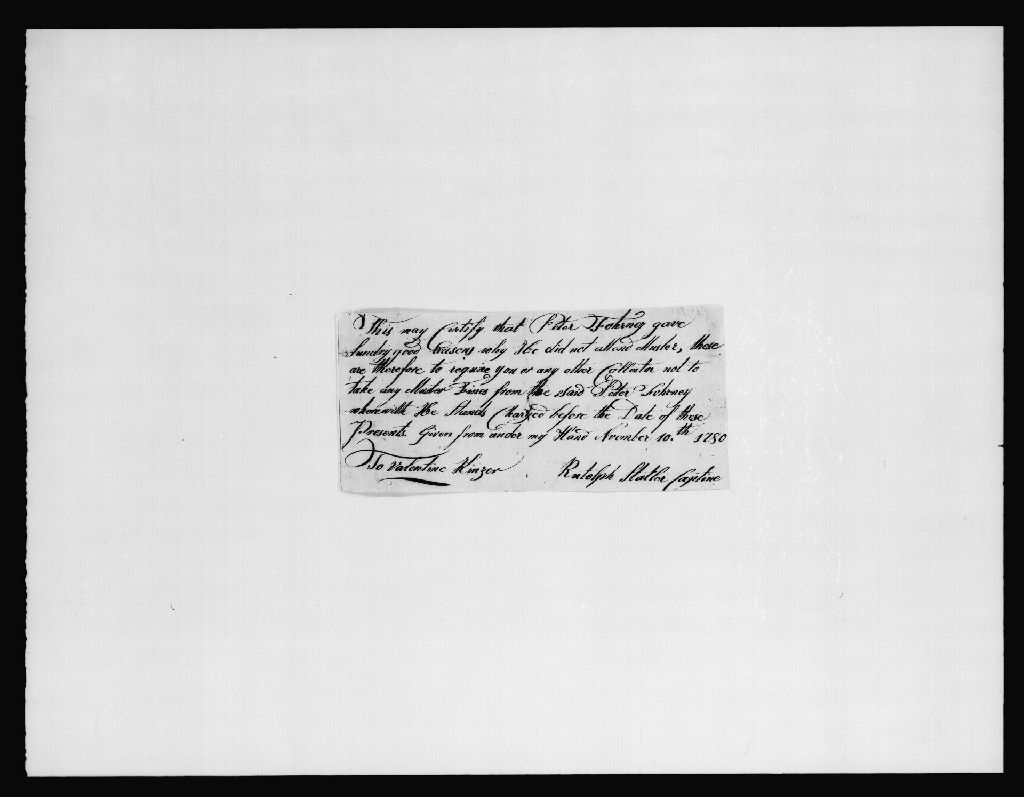 This may Certify that Peter Fohrney gave
Sundry good Reasons why He did not attend Muster, these
are therefore to require you or any other Collector not to
take any Muster Fines from the said Peter Fohrney
wherewith He Stands Charged before the Date of these
Presents. Given from under my Hand November 10.th 1780
To Valentine Kinzer
Rudolph Statler Captine